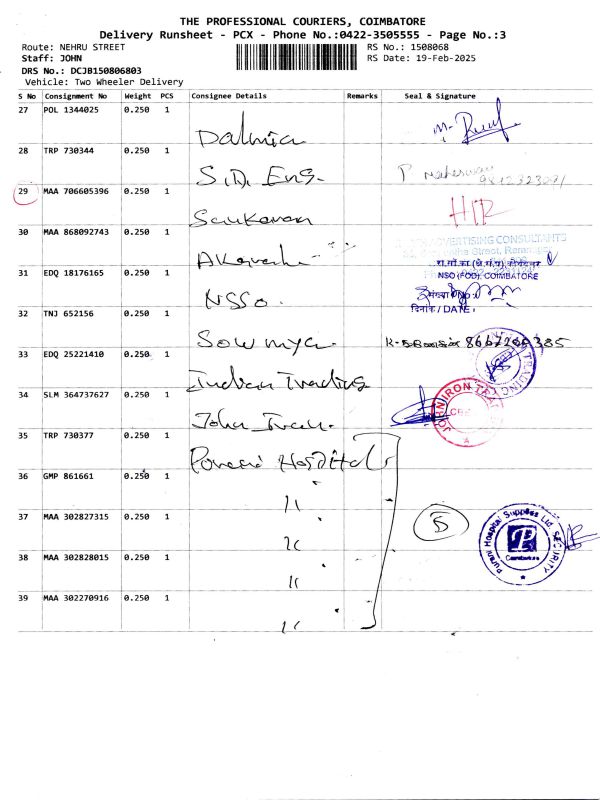 THE PROFESSIONAL COURIERS, COIMBATORE
Delivery Runsheet - PCX - Phone No.:0422-3505555 - Page No.:3
Route: NEHRU STREET
RS No.: 1508068
Staff: JOHN
RS Date: 19-Feb-2025
DRS No.: DCJB150806803
Vehicle: Two Wheeler Delivery
S No Consignment No Weight PCS Consignee Details Remarks Seal & Signature
27 POL 1344025 0.250 1
Dalmia
28 TRP 730344 0.250 1
S.D. Eng.
29 MAA 706605396 0.250 1
Sankaran
30 MAA 868092743 0.250 1
ADVERTISING CONSULTANTS
NSO (FOD), COIMBATORE
31 EDQ 18176165 0.250 1
NSSO.
दिनांक / DATE:
32 TNJ 652156 0.250 1
Sowmya
33 EDQ 25221410 0.250 1
Indian Trading
34 SLM 364737627 0.250 1
John Iron
JOHN IRON
35 TRP 730377 0.250 1
Hospital
36 GMP 861661 0.250 1
"
37 MAA 302827315 0.250 1
"
5
Purani Hospital Supplies Ltd. SECURITY
Coimbatore
38 MAA 302828015 0.250 1
"
39 MAA 302270916 0.250 1
"